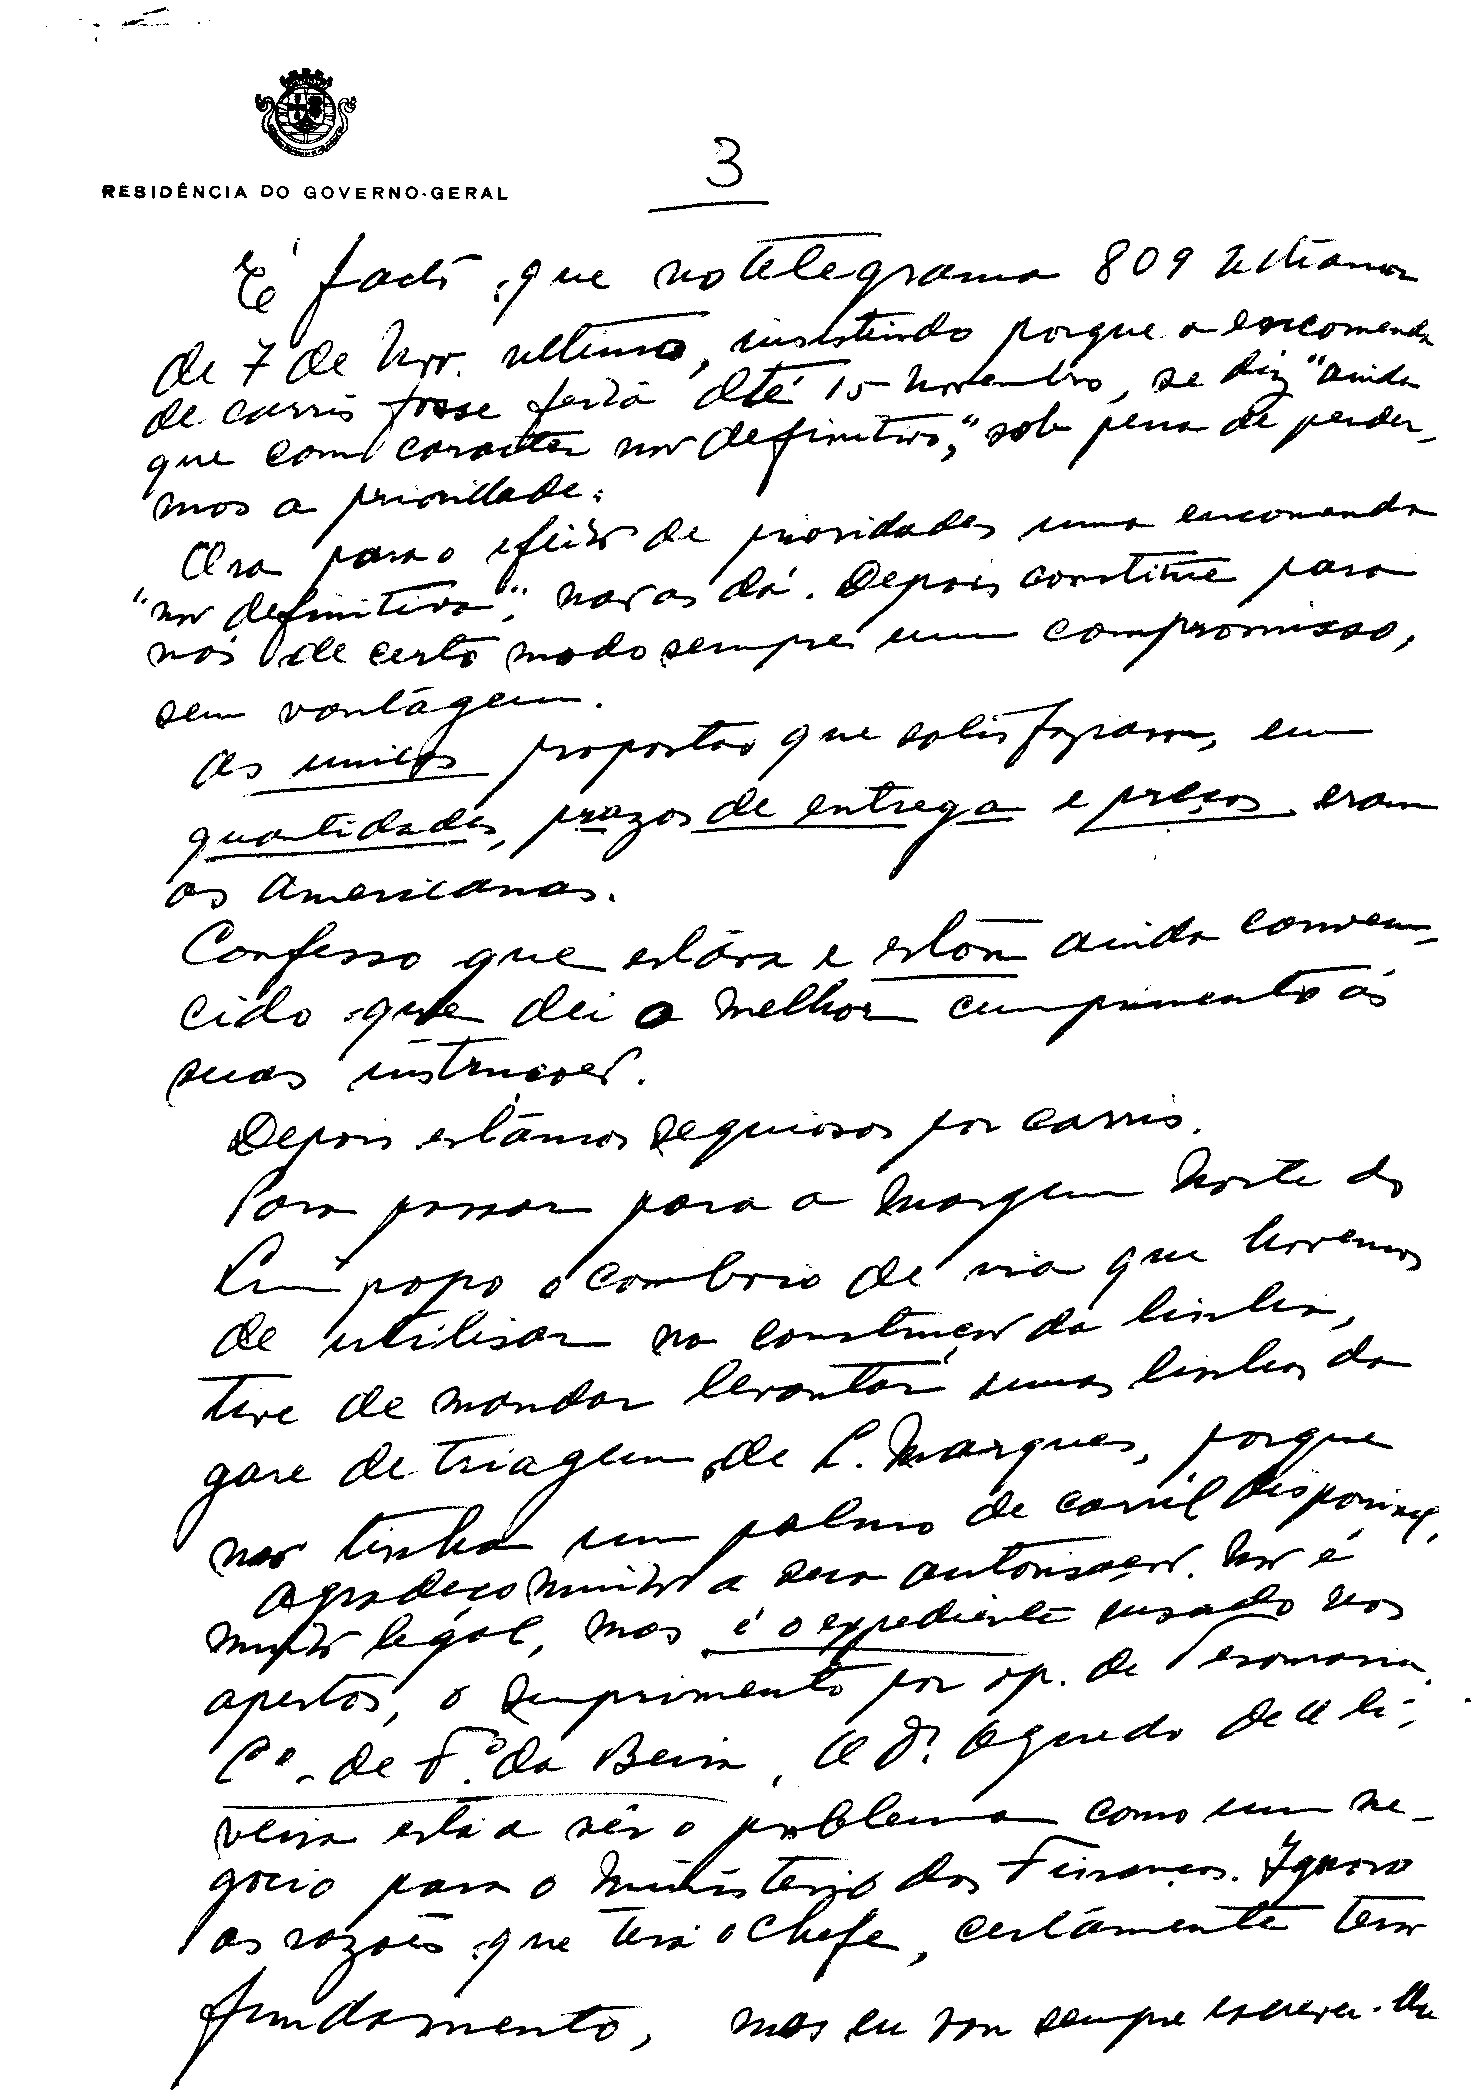 RESIDÊNCIA DO GOVERNO-GERAL
3
É facto que no telegrama 809 Ultramar
de 7 de Nov. ultimo, insistindo porque a encomenda
de carris fosse feita até 15 novembro, se diz "ainda
que com caracter não definitivo," sob pena de perder-
mos a prioridade.
Ora para o efeito de prioridades uma encomenda
"não definitiva", não as dá. Depois constitue para
nós de certo modo sempre um compromisso,
sem vantagem.
As unicas propostas que satisfaziam, em
quantidades, prazos de entrega e preços eram
as americanas.
Confesso que estáva e estou ainda conven-
cido que dei o melhor cumprimento ás
suas instruções.
Depois estâmos sequiosos por carris.
Para passar para a margem Norte do
Limpopo o comboio de via que havemos
de utilisar na construção da linha,
tive de mandar levantar umas linhas da
gare de triagem de L. Marques, porque
não tinha um palmo de carril disponivel.
Agradeço muito a sua autorisação. Não é
muito legál, mas é o expediente usado nos
apertos, o suprimento por op. de Tesouraria.
Cº. de F.º da Beira, O Dr. Aguedo de Oli-
veira está a vêr o problema como um ne-
gocio para o Ministério das Finanças. Ignoro
as razões que terá o Chefe, certâmente tem
fundamento, mas eu vou sempre escrever-